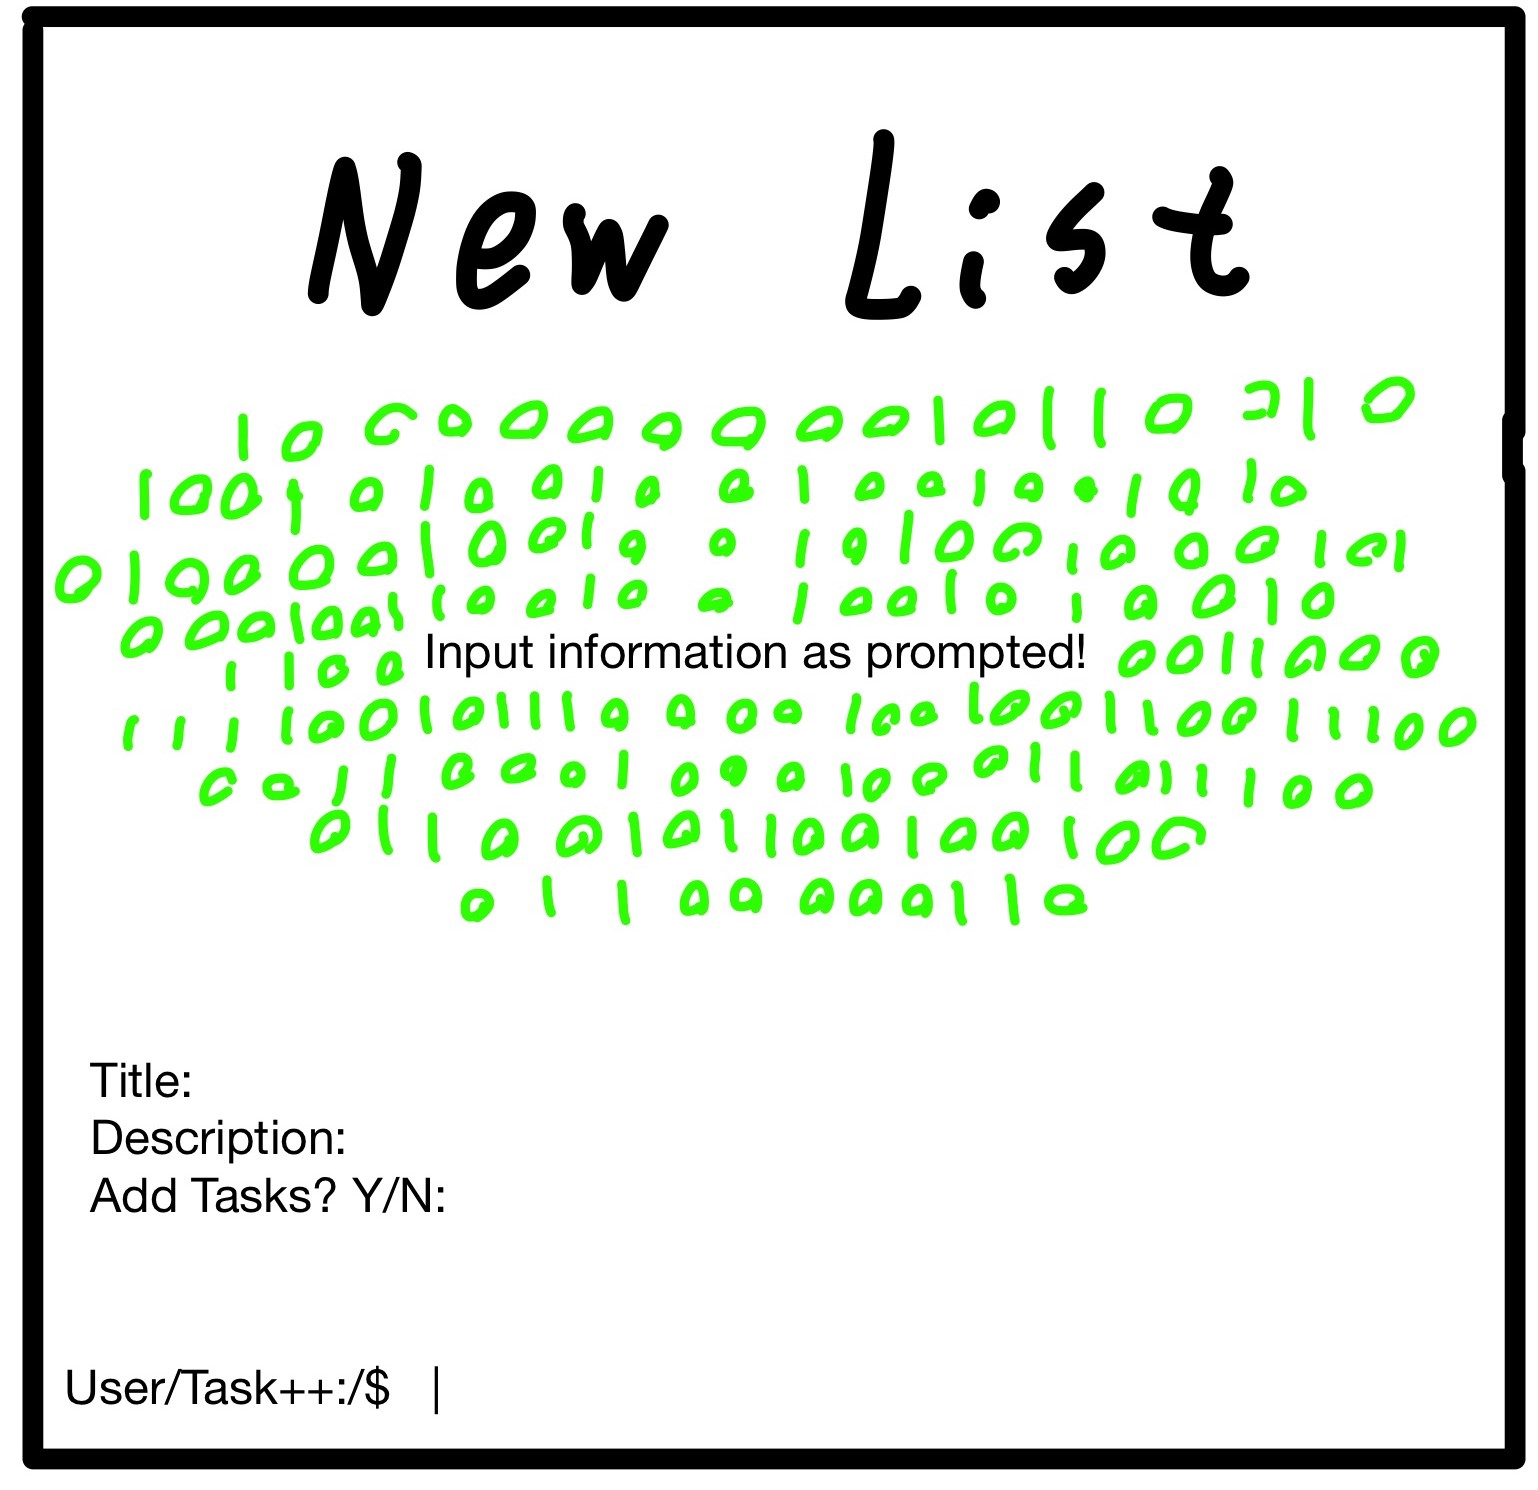 New List
10000000001011100110
1001010010101001001010
01000010010010100100001101
0001001100101001001010010
1100 Input information as prompted! 0011000
111100101110000100100110011100
0011000100010001101100
011001011001001000
0110000110
Title:
Description:
Add Tasks? Y/N:
User/Task++:/$ |